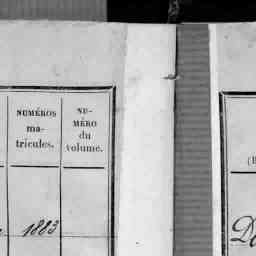 NUMÉROS
ma-
tricules.
NU-
MÉRO
du
volume.
1883